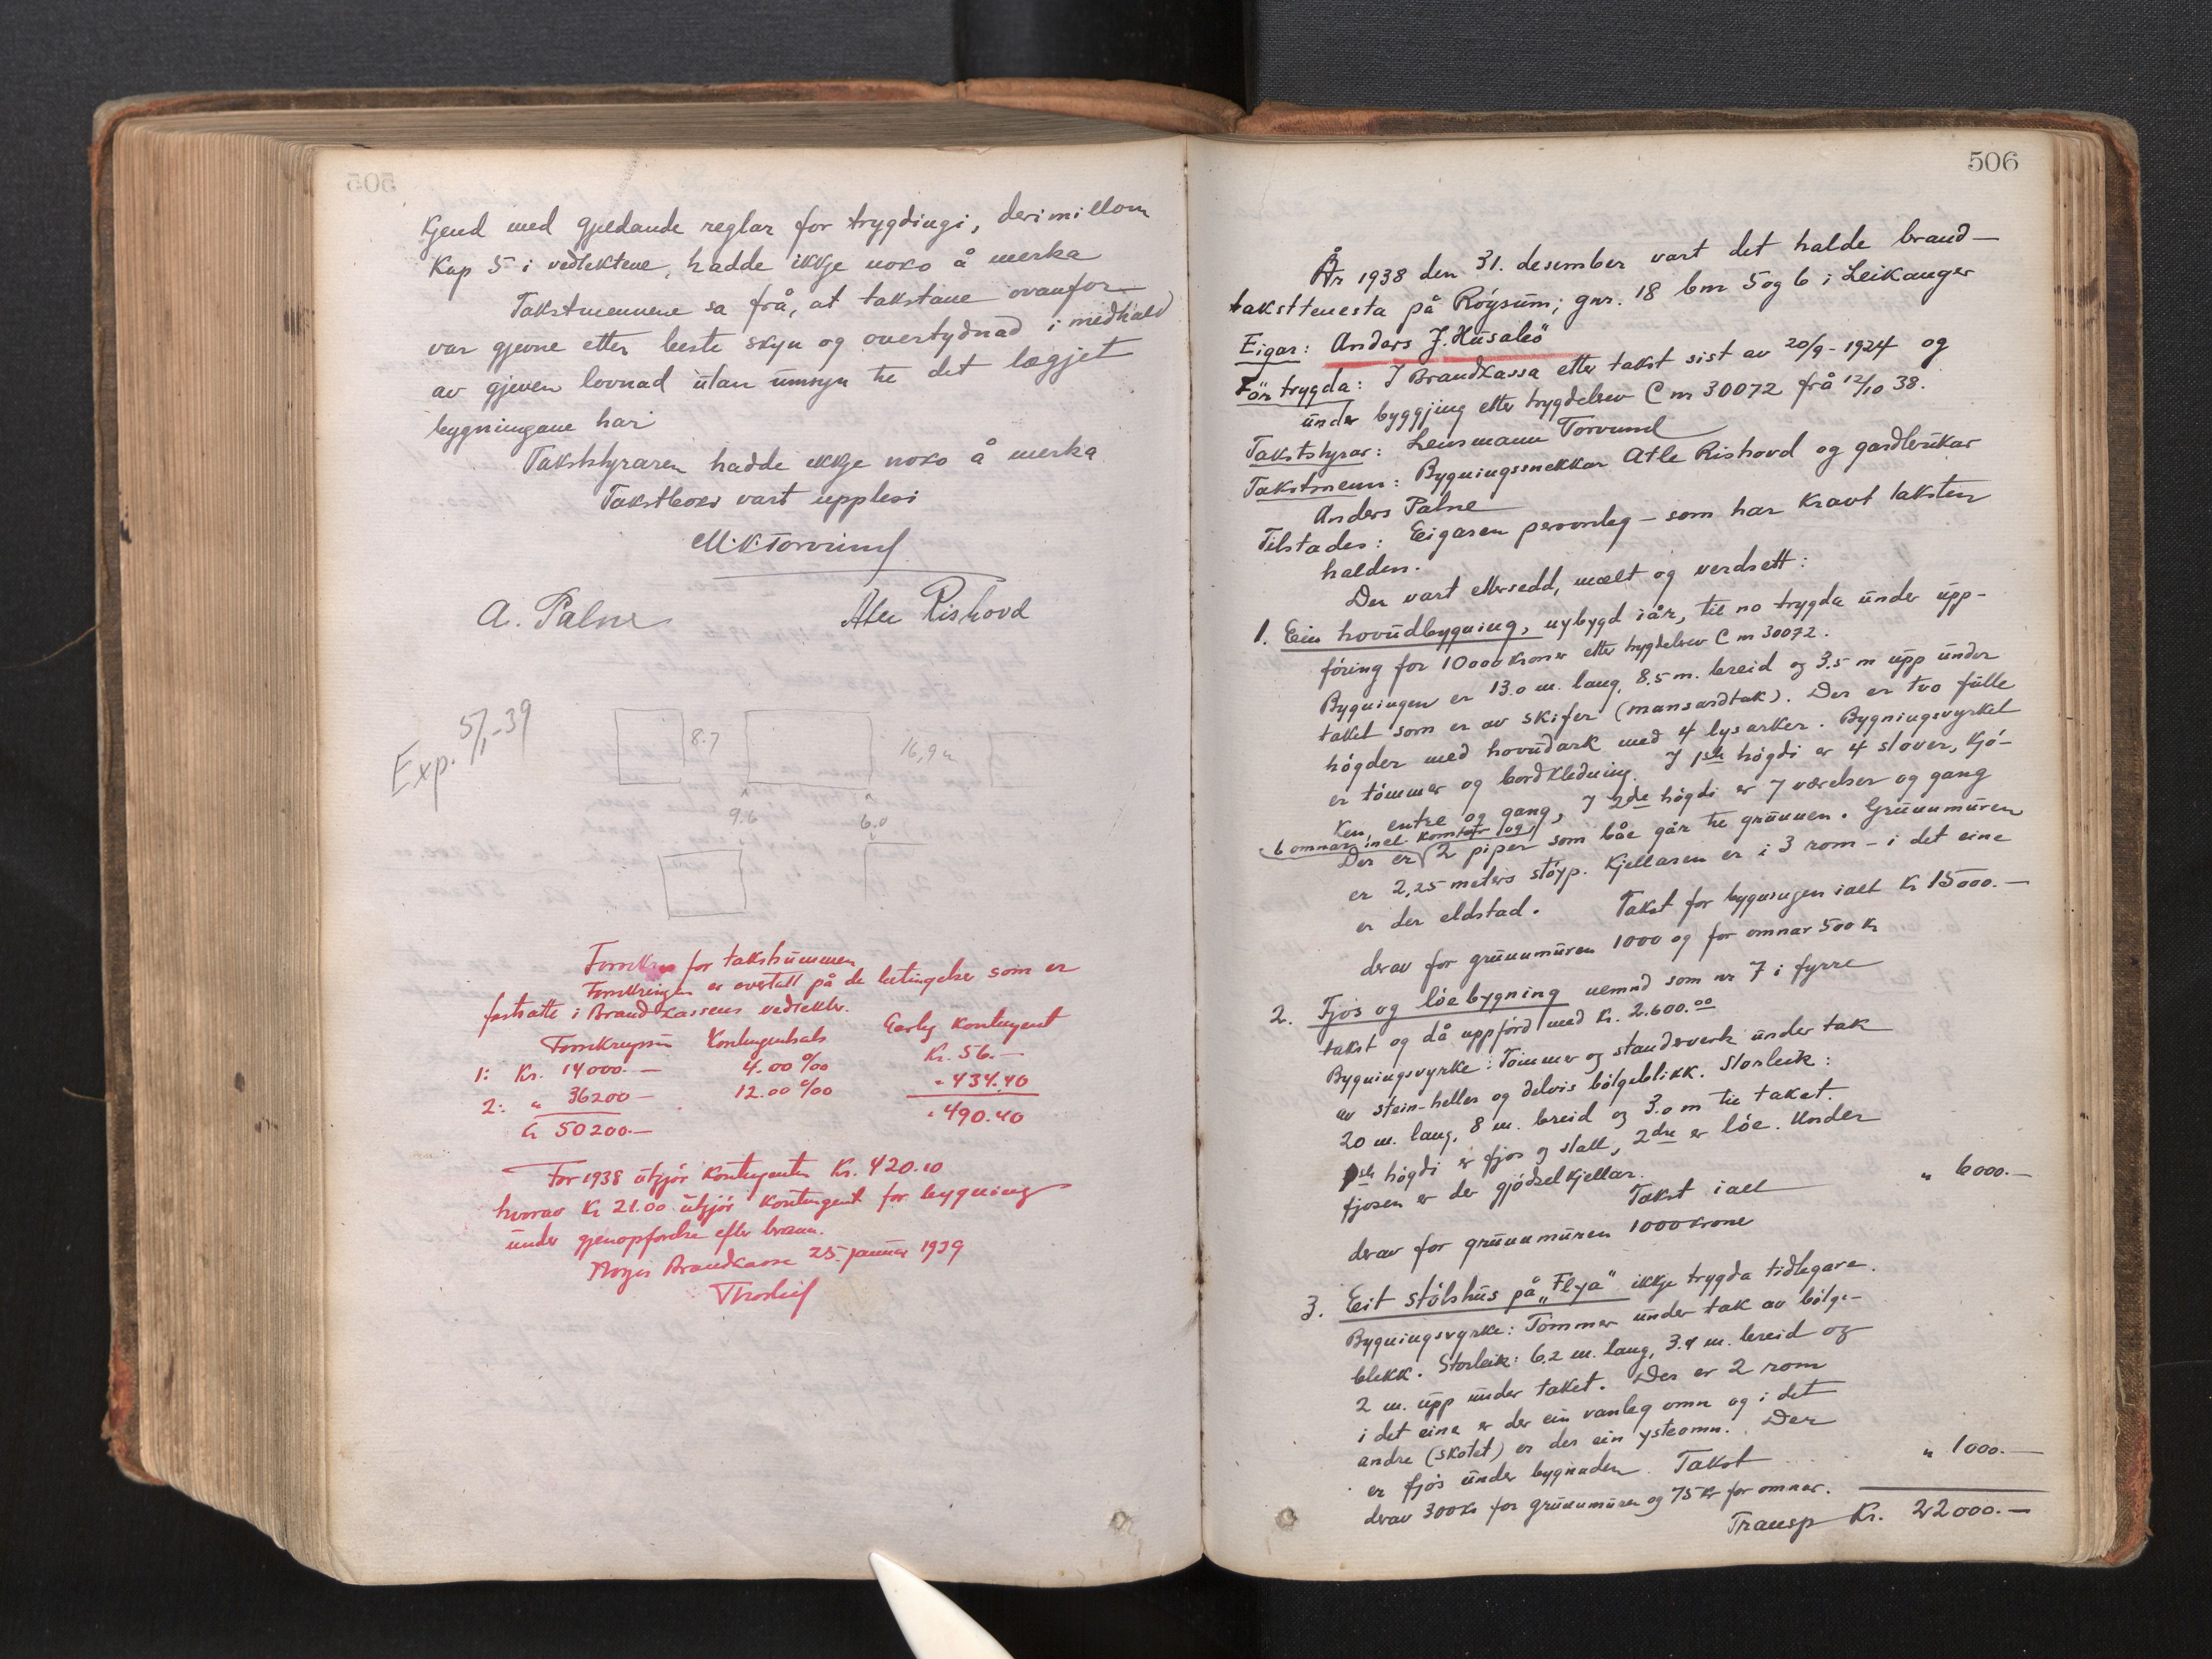 505
Kjend med gjeldande reglar for trygdingi, derimillom
Kap 5 i vedtektene, hadde ikkje noko å merka
Takstmennene sa frå, at takstane ovanfor
var gjevne etter beste skyn og overtydnad i medhald
av gjeven lovnad utan umsyn til det lægjet
bygningane har
Takststyraren hadde ikkje noko å merka
Takstboki vart upplesi
M.K. Torvund
A. Palne Atle Rishovd
Exp. 5/1-39
8.7
16,9
9.6 6.0
for takstsummen
Forsikringen er overtatt på de betingelser som er
fastsatte i Brandkassens vedtekter.
Forsikringssum Kontingentsats Aarlig Kontingent
1: Kr. 14000.— 4.00 ‰ Kr. 56.—
2: " 36200— 12.00 ‰ " 434.40
Kr 50200.— " 490.40
For 1938 utgjør kontingenten Kr. 420.10
hvorav Kr 21.00 utgjør kontingent for bygning
under gjenopførelse efter brann.
Norges Brandkasse 25. januar 1939
506
År 1938 den 31. desember vart det halde brand—
taksttenesta på Röysum; gnr. 18 bnr 5 og 6 i Leikanger
Eigar: Anders J. Husabö
För trygda: I Brandkassa etter takst sist av 20/9-1924 og
under byggjing etter trygdebrev C nr 30072 frå 12/10 38.
Takststyrar: Lensmann Torvund
Takstmenn: Bygningssnekkar Atle Rishovd og gardbrukar
Anders Palne
Tilstades: Eigaren personleg — som har kravt taksten
halden.
Der vart ettersedd, mælt og verdsett:
1. Ein hovudbygning, nybygd i år, til no trygda under upp-
föring for 10000 kroner etter trygdebrev C nr 30072.
Bygningen er 13.0 m. lang, 8.5 m. breid og 3.5 m upp under
taket som er av skifer (mansardtak). Der er tvo fulle
högder med hovudark med 4 lysarker. Bygningsvyrket
er tömmer og bordkledning. I 1ste högdi er 4 stover, kjö-
ken, entre og gang, I 2dre högdi er 7 værelser og gang
6 omnar inel. komfyr og
Der er 2 piper som båe går til grunnen. Grunnmuren
er 2,25 meters støyp. Kjellaren er i 3 rom — i det eine
er der eldstad. Takst for bygningen ialt Kr 15000.—
derav for grunnmuren 1000 og for omnar 500 Kr
2. Fjos og löebygning nemnd som nr 7 i fyrre
takst og då uppförd med Kr. 2.600.00
Bygningsvyrke: Tömmer og standverk under tak
av stein-heller og delvis bölgeblikk. Storleik:
20 m. lang, 8 m. breid og 3.0 m til taket.
1ste högdi er fjos og stall, 2dre er löe. Under
fjosen er der gjödselkjellar.
Takst ialt " 6000.—
derav for grunnmuren 1000 krone
3. Eit stölshus på „Flya" ikkje trygda tidlegare.
Bygningsvyrke: Tömmer under tak av bölge-
blekk. Storleik: 6.2 m. lang, 3.9 m. breid og
2 m. upp under taket. Der er 2 rom
i det eine er der ein vanleg omn og i det
andre (skotet) er der ein ysteomn. Der
er fjös under bygnaden. Takst " 1000.—
derav 300 Kr for grunnmuren og 75 Kr for omnar.
Transp Kr. 22000.—